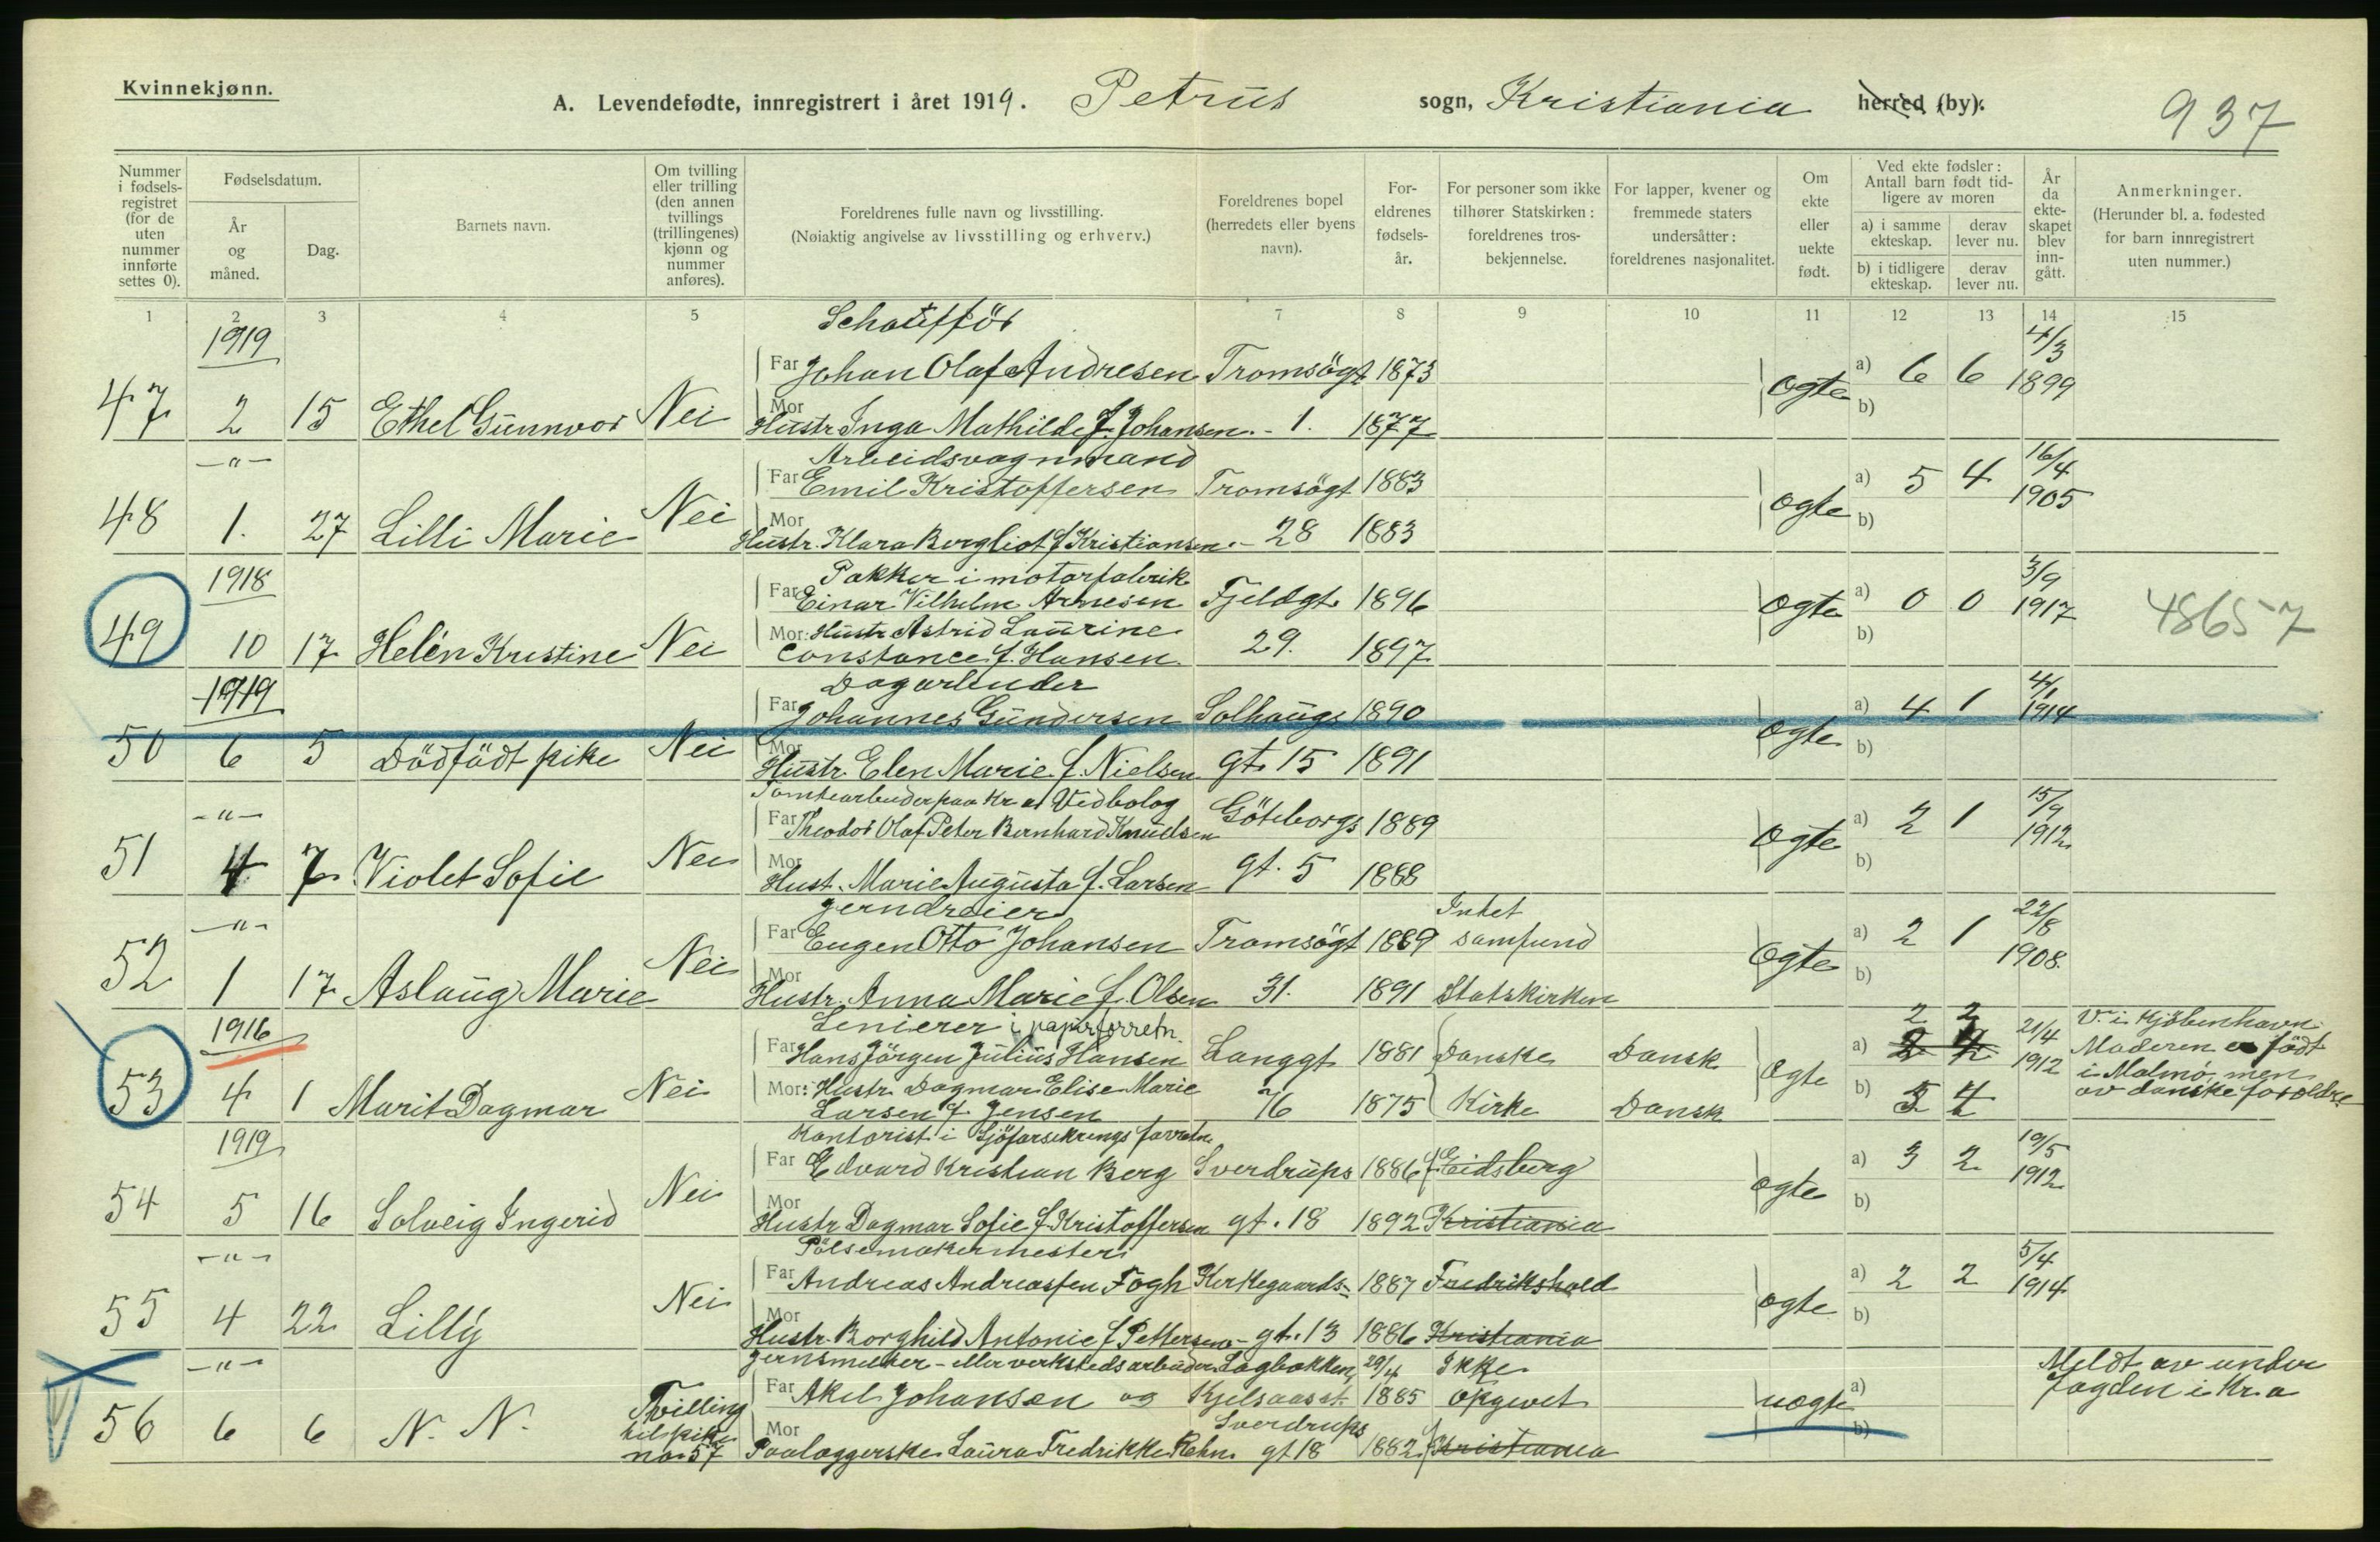 Kvinnekjønn.
A. Levendefødte, innregistrert i året 1919. Petrus sogn, Kristiania herred (by).
937
Nummer i fødsels-registret (for de uten nummer innførte settes 0).
Fødselsdatum.
År og måned.
Dag.
Barnets navn.
Om tvilling eller trilling (den annen tvillings (trillingenes) kjønn og nummer anføres).
Foreldrenes fulle navn og livsstilling.
(Nøiaktig angivelse av livsstilling og erhverv.)
Foreldrenes bopel (herredets eller byens navn).
For-eldrenes fødsels-år.
For personer som ikke tilhører Statskirken: foreldrenes tros-bekjennelse.
For lapper, kvener og fremmede staters undersåtter: foreldrenes nasjonalitet.
Om ekte eller uekte født.
Ved ekte fødsler: Antall barn født tid-ligere av moren
a) i samme ekteskap. derav lever nu.
b) i tidligere ekteskap. derav lever nu.
År da ekte-skapet blev inn-gått.
Anmerkninger.
(Herunder bl. a. fødested for barn innregistrert uten nummer.)
1 2 3 4 5 7 8 9 10 11 12 13 14 15
1919 Schaufför 4/3
Far Johan Olaf Andresen Tromsögt 1873 ogte a) 6 6 1899
47 2 15 Ethel Gunnvor Nei Mor Hustr Inga Mathilde f. Johansen. - 1. 1877 b)
-"- Arbeidsvognmand 16/4
Far Emil Kristoffersen Tromsögt 1883 ogte a) 5 4 1905
48 1. 27 Lilli Marie Nei Mor Hustr. Klara Bergliot f Kristiansen. - 28 1883 b)
1918 Pakker i motorfabrik 3/9
Far Einar Vilhelm Arnesen Fjeldgt. 1896 ogte a) 0 0 1917 48657
49 10 17 Helén Kristine Nei Mor: Hustr Astrid Laurine
Constance f. Hansen. 29. 1897 b)
1919 Dagarbeider 4/1
Far Johannes Gundersen Solhaugs 1890 ogte a) 4 1 1914
50 6 5 Dödfödt pike Nei Mor Hustr. Elen Marie f. Nielsen gt. 15 1891 b)
-"- Tomtearbeider paa Kr.a Vedbolag 15/9
Far Theodor Olaf Peter Bernhard Knudsen Göteborgs 1889 ogte a) 2 1 1912
51 4 7 Violet Sofie Nei Mor Hust. Marie Augusta f. Larsen gt. 5 1888 b)
-"- Jerndreier Intet 22/8
Far Eugen Otto Johansen Tromsögt 1889 samfund ogte a) 2 1 1908
52 1 17 Aslaug Marie Nei Mor Hustr. Anna Marie f. Olsen 31. 1891 Statskirken b)
1916 Lenierer i papirforretn. 2 2 21/4 V. i Kjöbenhavn
Far Hans Jörgen Julius Hansen Langgt 1881 Danske Dansk ogte a) 2 4 1912 Moderen er födt
i Malmö, men
53 4 1 Marit Dagmar Nei Mor: Hustr. Dagmar Elise Marie
Larsen f Jensen 76 1875 Kirke Dansk b) 5 4 av danske foroldre
1919 Kontorist i Sjöforsikringsforretn. 19/5
Far Edvard Kristian Berg Sverdrups 1886 f. Eidsberg ogte a) 3 2 1912
54 5 16 Solveig Ingerid Nei Mor Hustr Dagmar Sofie f Kristoffersen gt. 18 1892 Kristiania b)
-"- Pölsemakermester 5/4
Far Andreas Andreassen Fogh Kirkegaards- 1887 Fredrikshald ogte a) 2 2 1914
55 4 22 Lilly Nei Mor Hustr. Borghild Antonie f Pettersen - gt. 13 1886 Kristiania b)
-"- Jernsmelter - eller verkstedsarbeider Lagbokken, 29/4 Ikke Meldt av under
Far Akel Johansen og Kjelsaasst. 1885 opgivet uogte a) fogden i Kr.a
56 6 6 N. N. Tvilling til pike no 57 Mor Paaloggerske Laura Fredrikke Rehn Sverdrups gt 18 1882 f Kristiania b)